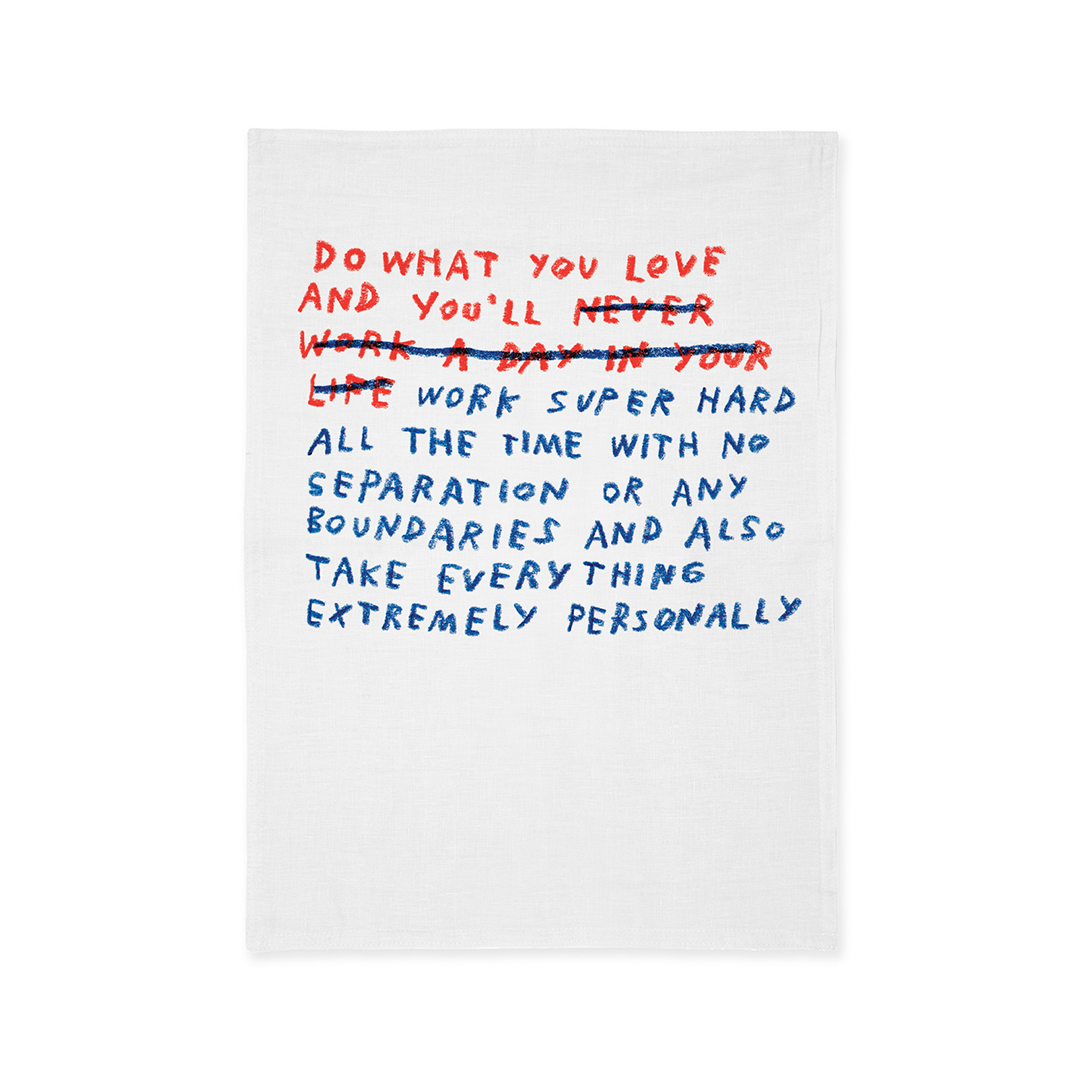 DO WHAT YOU LOVE
AND YOU'LL NEVER
WORK A DAY IN YOUR
LIFE WORK SUPER HARD
ALL THE TIME WITH NO
SEPARATION OR ANY
BOUNDARIES AND ALSO
TAKE EVERYTHING
EXTREMELY PERSONALLY